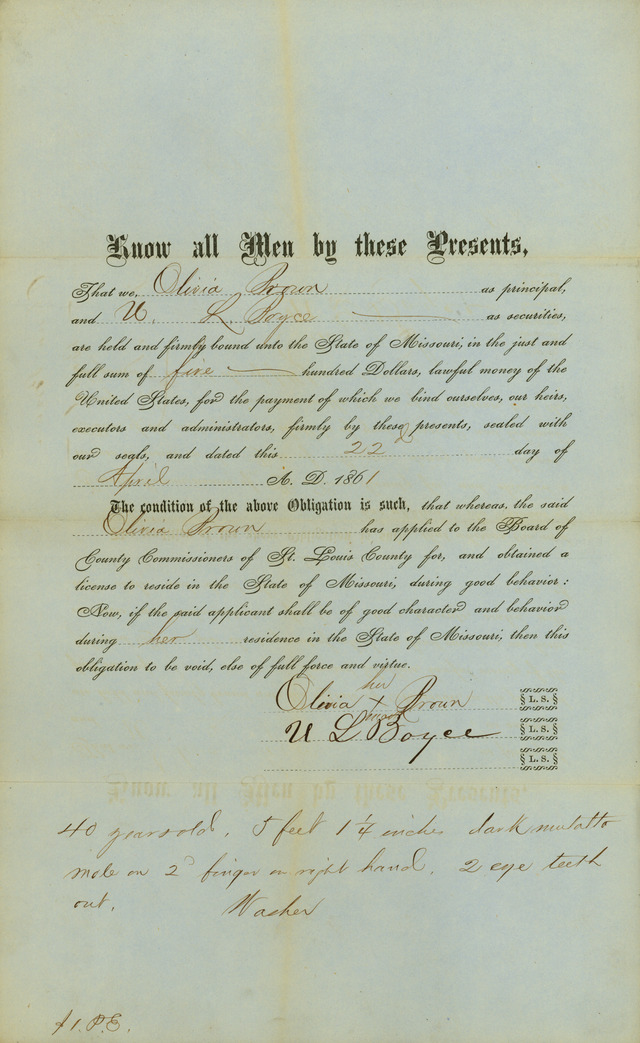 Know all Men by these Presents,
That we, Olivia Brown as principal,
and U. L Boyce as securities,
are held and firmly bound unto the State of Missouri, in the just and
full sum of five hundred Dollars, lawful money of the
United States, for the payment of which we bind ourselves, our heirs,
executors and administrators, firmly by these presents, sealed with
our seals, and dated this 22d day of
April A. D. 1861
The condition of the above Obligation is such, that whereas, the said
Olivia Brown has applied to the Board of
County Commissioners of St. Louis County for, and obtained a
license to reside in the State of Missouri, during good behavior:
Now, if the said applicant shall be of good character and behavior
during her residence in the State of Missouri, then this
obligation to be void, else of full force and virtue.
her
Olivia x Brown L. S.
mark
U L Boyce L. S.
L. S.
40 years old, 5 feet 1 1/4 inches dark mulatto
mole on 2d finger on right hand. 2 eye teeth
out. Washer